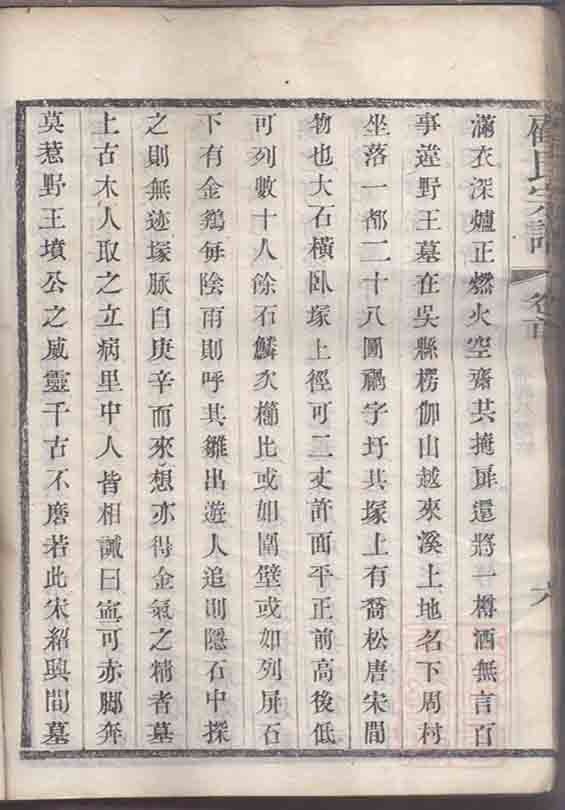 氏宗譜 卷首 六
滿衣深爐正燃火空齋共掩扉還將一樽酒無言百
事違野王墓在吳縣楞伽山越來溪上地名下周村
坐落一都二十八圖鵷字圩其塚上有喬松唐宋間
物也大石橫卧塚上徑可二丈許面平正前高後低
可列數十人餘石鱗次櫛比或如圍壁或如列屏石
下有金鵝每陰雨則呼其雛出遊人追則隱石中探
之則無迹塚脉自庚辛而來想亦得金氣之精者墓
上古木人取之立病里中人皆相誡曰寧可赤脚奔
莫惹野王墳公之威靈千古不磨若此宋紹興間墓